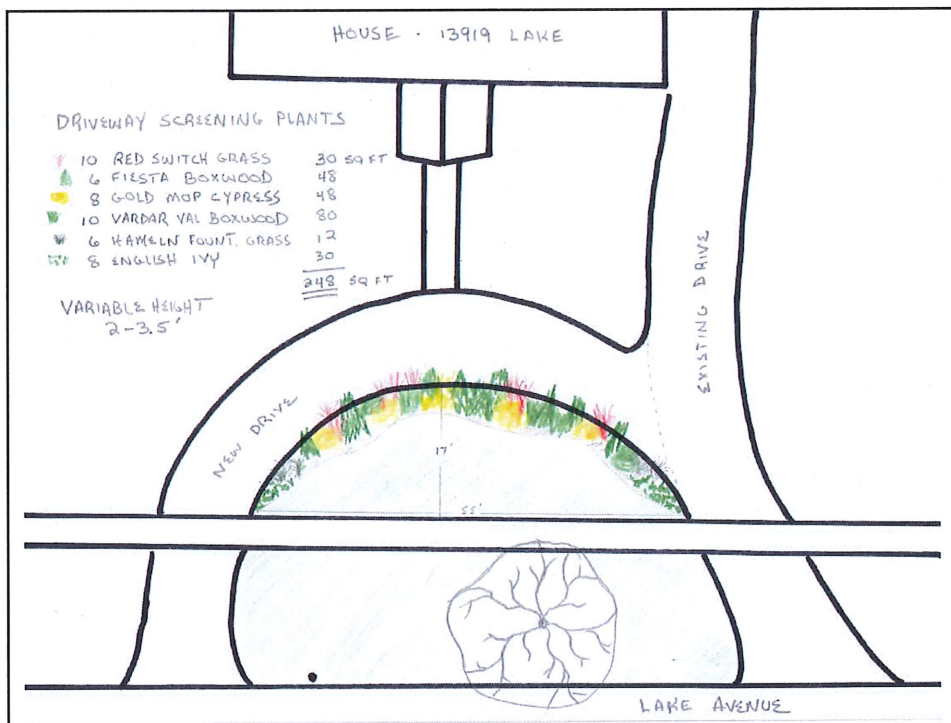 HOUSE - 13919 LAKE
DRIVEWAY SCREENING PLANTS
10 RED SWITCH GRASS 30 SQ FT
6 FIESTA BOXWOOD 48
8 GOLD MOP CYPRESS 48
10 VARDAR VAL BOXWOOD 80
6 HAMELN FOUNT. GRASS 12
8 ENGLISH IVY 30
248 SQ FT
VARIABLE HEIGHT
2-3.5'
EXISTING DRIVE
NEW DRIVE
17'
55'
LAKE AVENUE